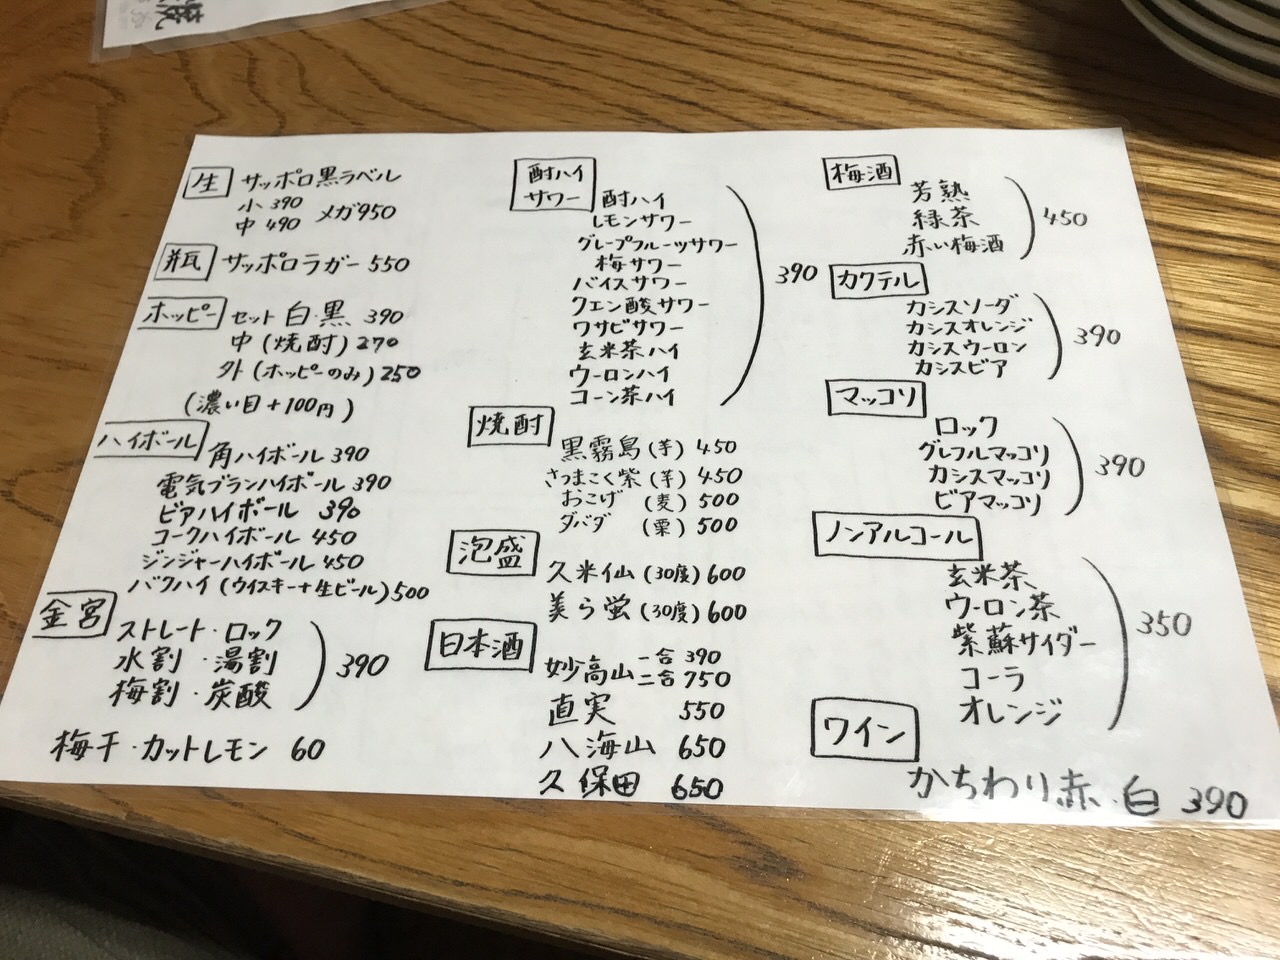 焼
生 サッポロ黒ラベル
小 390
中 490 メガ950
瓶 サッポロラガー 550
ホッピー セット 白・黒 390
中 (焼酎) 270
外 (ホッピーのみ) 250
(濃い目+100円)
ハイボール
角ハイボール 390
電気ブランハイボール 390
ビアハイボール 390
コークハイボール 450
ジンジャーハイボール 450
バクハイ (ウイスキー+生ビール) 500
金宮
ストレート・ロック
水割・湯割
梅割・炭酸
390
梅干・カットレモン 60
酎ハイ
サワー
酎ハイ
レモンサワー
グレープフルーツサワー
梅サワー
バイスサワー
クエン酸サワー
ワサビサワー
玄米茶ハイ
ウーロンハイ
コーン茶ハイ
390
焼酎
黒霧島 (芋) 450
さつまこく紫 (芋) 450
おこげ (麦) 500
ダバダ (栗) 500
泡盛
久米仙 (30度) 600
美ら蛍 (30度) 600
日本酒
妙高山 一合 390
二合 750
直実 550
八海山 650
久保田 650
梅酒
芳熟
緑茶
赤い梅酒
450
カクテル
カシスソーダ
カシスオレンジ
カシスウーロン
カシスビア
390
マッコリ
ロック
グレフルマッコリ
カシスマッコリ
ビアマッコリ
390
ノンアルコール
玄米茶
ウーロン茶
紫蘇サイダー
コーラ
オレンジ
350
ワイン
かちわり赤・白 390